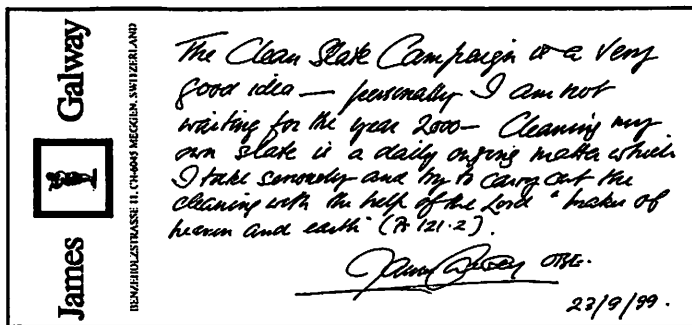 James Galway
BENZEHOLZSTRASSE 11, CH-6045 MEGGEN, SWITZERLAND
The Clean Slate Campaign is a very
good idea — personally I am not
waiting for the year 2000 — Cleaning my
own slate is a daily ongoing matter which
I take seriously and try to carry out the
cleaning with the help of the Lord "maker of
heaven and earth" (Ps 121·2).
James Galway OBE.
23/9/99.